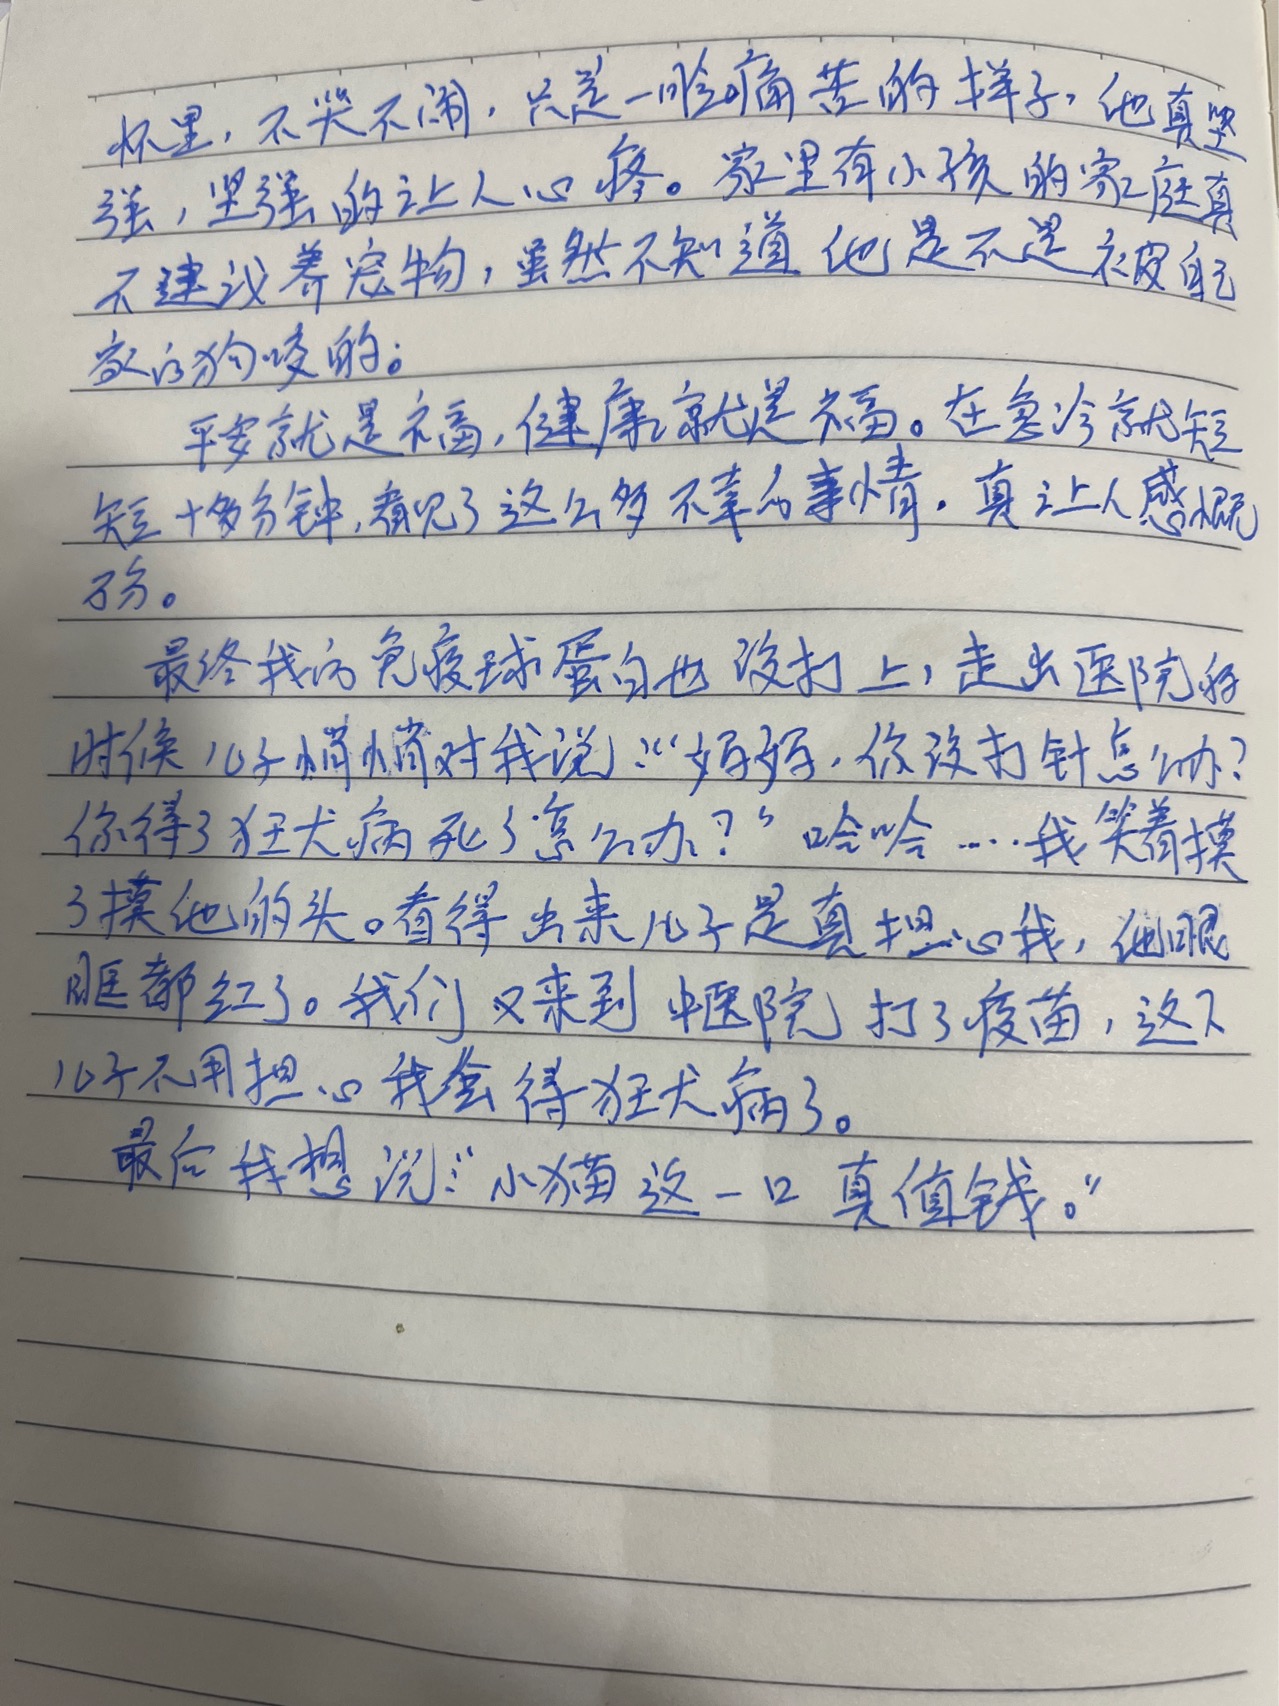 怀里，不哭不闹，只是一脸痛苦的样子，他真坚
强，坚强的让人心疼。家里有小孩的家庭真
不建议养宠物，虽然不知道他是不是被自己
家的狗咬的。
平安就是福，健康就是福。在急诊就短
短十多分钟，看见了这么多不幸的事情。真让人感慨
万分。
最终我的免疫球蛋白也没打上，走出医院的
时候儿子悄悄对我说："妈妈，你没打针怎么办？
你得了狂犬病死了怎么办？"哈哈……我笑着摸
了摸他的头。看得出来儿子是真担心我，他眼
眶都红了。我们又来到中医院打了疫苗，这下
儿子不用担心我会得狂犬病了。
最后我想说："小猫这一口真值钱。"